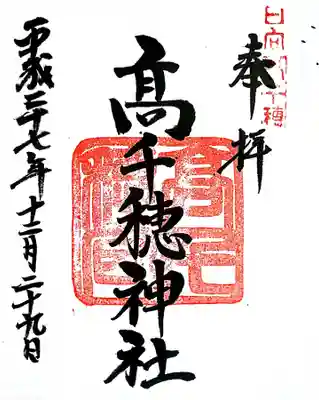 奉拝
髙千穂神社
平成二十七年十二月二十九日